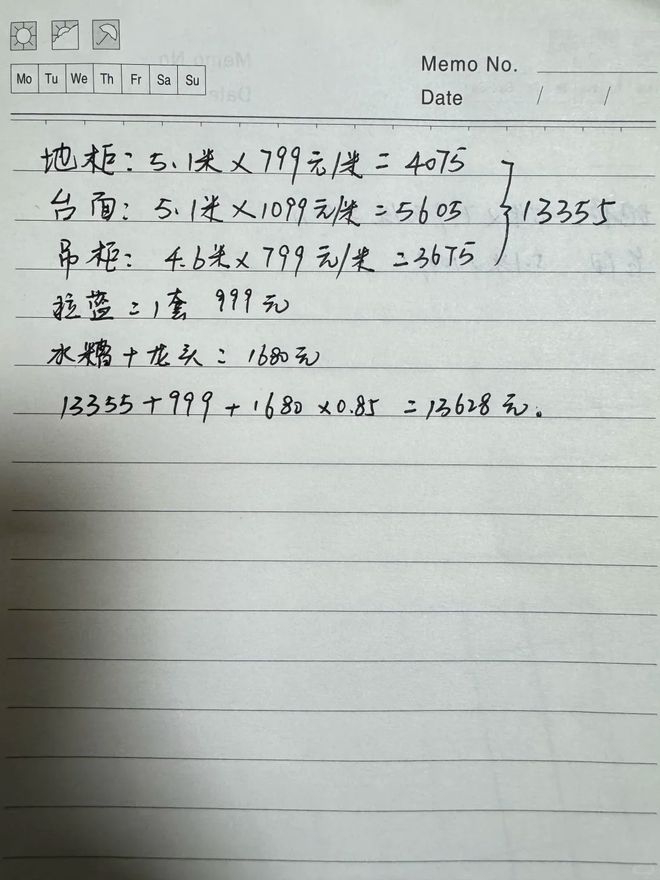 Mo Tu We Th Fr Sa Su
Memo No.
Date / /
地柜：5.1米×799元/米=4075
台面：5.1米×1099元/米=5605
吊柜：4.6米×799元/米=3675
} 13355
拉蓝=1套 999元
水糟+龙头：1680元
13355+999+1680×0.85=13628元。